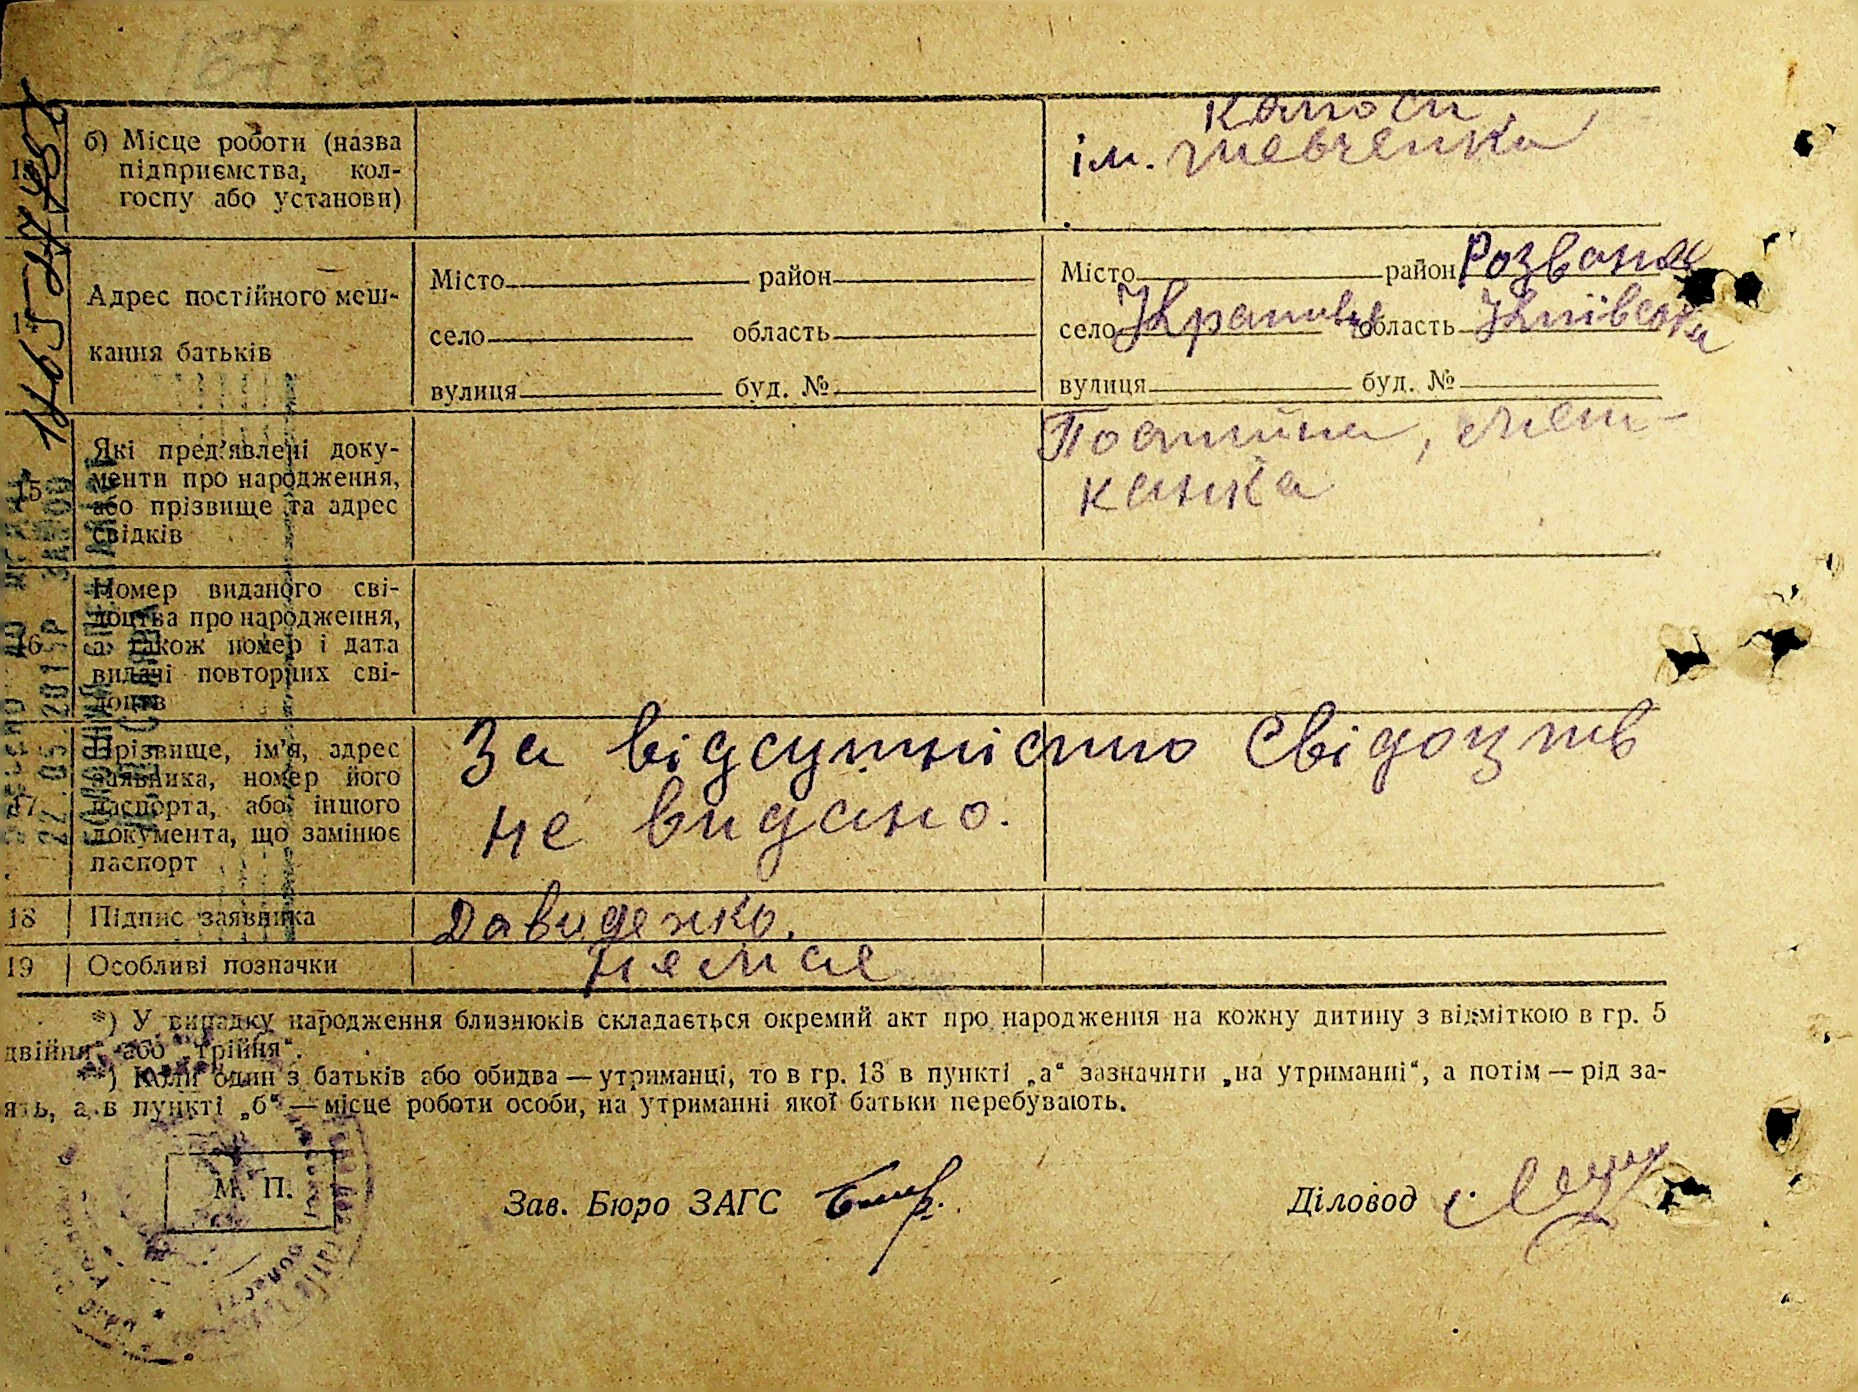 б) Місце роботи (назва
підприємства, кол-
госпу або установи)
ім. Шевченка
13
Адрес постійного меш-
кання батьків
Місто район
село область
вулиця буд. №
Місто район Розваж
село область Київська
вулиця буд. №
15
Які пред'явлені доку-
менти про народження,
або прізвище та адрес
свідків
Постійна, меш-
канка
16
Номер виданого сві-
доцтва про народження,
а також номер і дата
видачі повторних сві-
доцтв
17
Прізвище, ім'я, адрес
заявника, номер його
паспорта, або іншого
документа, що замінює
паспорт
За відсутністю Свідоцтв
не видано.
18 Підпис заявника Давиденко.
19 Особливі позначки немає
*) У випадку народження близнюків складається окремий акт про народження на кожну дитину з відміткою в гр. 5
двійня" або „трійня".
**) Коли один з батьків або обидва — утриманці, то в гр. 13 в пункті „а" зазначити „на утриманні", а потім — рід за-
ять, а в пункті „б" — місце роботи особи, на утриманні якої батьки перебувають.
М. П.
Зав. Бюро ЗАГС
Діловод